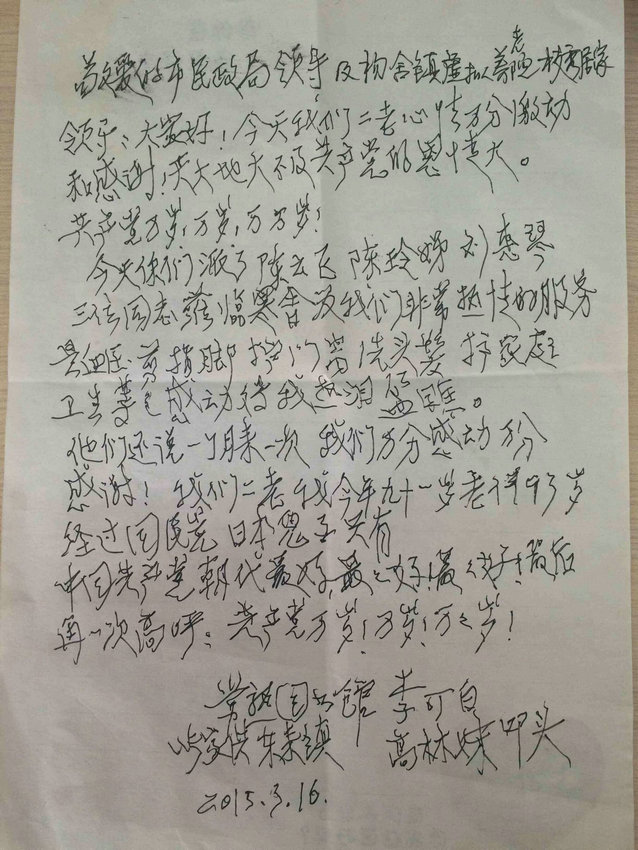 尊敬的市民政局领导及杨舍镇虚拟养老院 居家
领导：大家好！今天我们二老心情万分激动
和感谢！天大地大不及共产党的恩情大。
共产党万岁！万岁！万万岁！
今天你们派了陈云飞 陈玲娣 刘惠琴
三位同志莅临寒舍 为我们非常热情的服务
量血压 剪指脚 洗头发 庭
卫生等 感动得我热泪盈眶。
他们还说一个月来一次 我们万分感动万分
感谢！我们二老 我今年九十一岁老伴93岁
经过国民党 日本鬼子 只有
中国共产党朝代最好，最最好！最最好！最后
再一次高呼：共产党万岁！万岁！万万岁！
常熟图书馆 李可白
高林妹 叩头
2015.3.16.